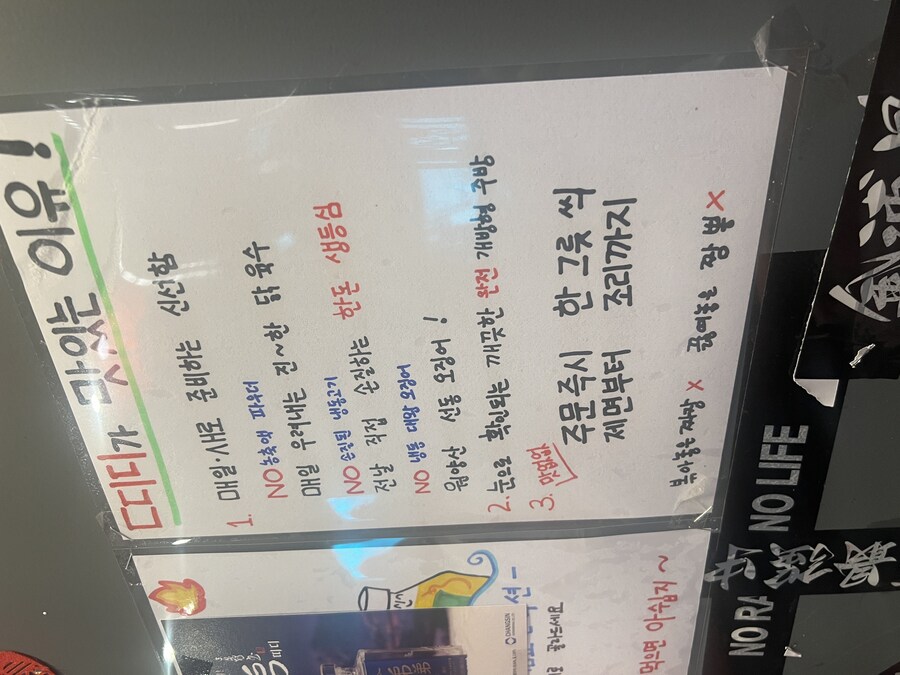 띠디디가 맛있는 이유!
1. 매일·새로 준비하는 신선함
NO 농축액 파우더
매일 우려내는 진~한 닭 육수
NO 손질된 냉동고기
전날 직접 손질하는 한돈 생등심
NO 냉동 대왕 오징어
원양산 선동 오징어!
2. 눈으로 확인되는 깨끗한 완전 개방형 주방
3. 맛없없
주문즉시 한 그릇 씩
제면부터 조리까지
볶아놓은 짜장 X 끓여놓은 짬뽕 X
띠디
CHANGSIN
골라드세요
먹으면 아쉽지~
NO RA
NO LIFE
最強